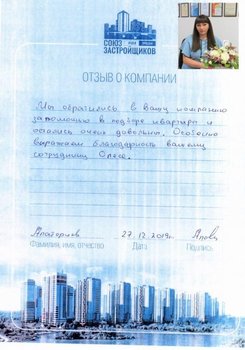 СОЮЗ
ЗАСТРОЙЩИКОВ
ОТЗЫВ О КОМПАНИИ
Мы обратились в вашу компанию
за помощью в подборе квартиры и
остались очень довольны. Особенно
выражаем благодарность вашему
сотруднику Олесе.
27.12.2019г.
Фамилия, имя, отчество Дата Подпись